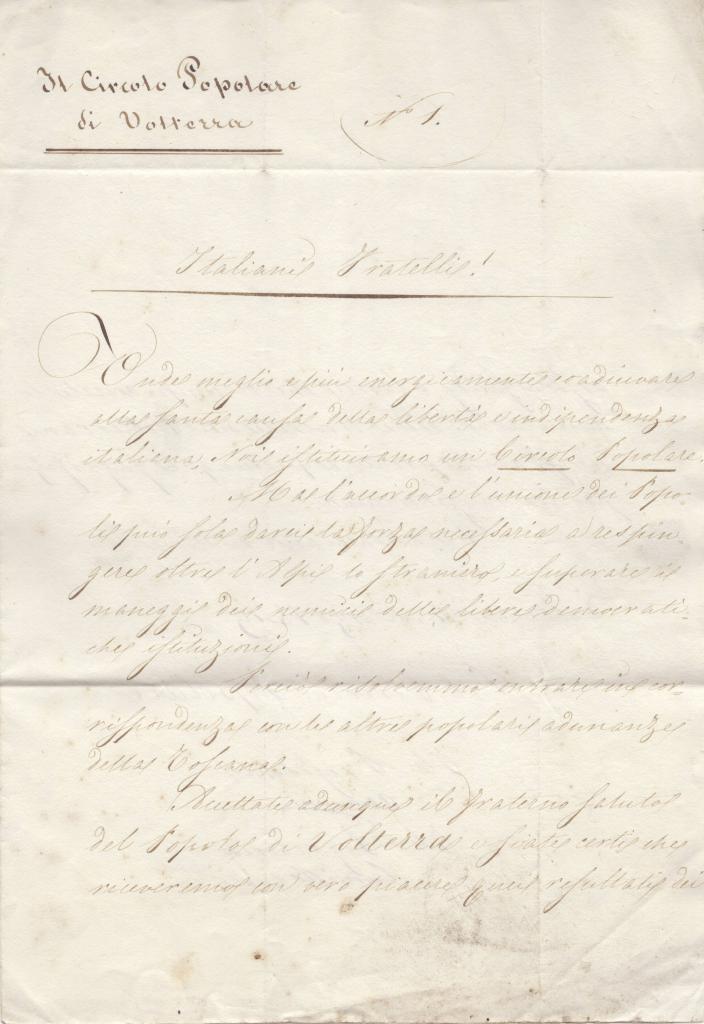 Il Circolo Popolare
di Volterra
N° 1.
Italiani Fratelli!
Onde meglio e più energicamente coadiuvare
alla santa causa della libertà e indipendenza
italiana, Noi istituivamo un Circolo Popolare.
Ma l'accordo e l'unione dei Popo-
li può sola darci la forza necessaria a respin-
gere oltre l'Alpi lo straniero, e superare i
maneggi dei nemici delle libere democrati-
che istituzioni.
Perciò risolvemmo entrare in cor-
rispondenza con le altre popolari adunanze
della Toscana.
Accettate adunque il fraterno saluto
del Popolo di Volterra e siate certi che
riceveremo con vero piacere quei resultati dei